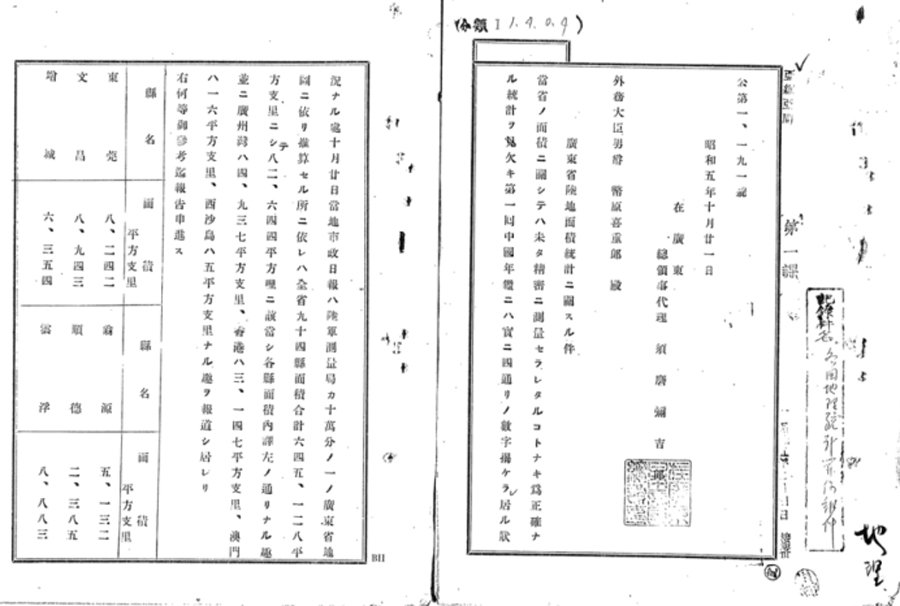 (分類I1.4.0.4)
第一課
公第一、一九一號
昭和五年十月廿一日
在廣東
總領事代理 須磨彌吉郎
外務大臣男爵 幣原喜重郎 殿
廣東省陸地面積統計ニ關スル件
當省ノ面積ニ關シテハ未タ精密ニ測量セラレタルコトナキ爲正確ナ
ル統計ヲ見欠キ第一回中國年鑑ニハ實ニ四通リノ數字揚ケラレ居ル狀
地理
況ナル處十月廿日當地市政日報ハ陸軍測量局カ十萬分ノ一ノ廣東省地
圖ニ依リ推算セル所ニ依レハ全省九十四縣面積合計六四五、一二八平
方支里ニシテ八二、六四四平方哩ニ該當シ各縣面積內譯左ノ通リナル趣
並ニ廣州灣ハ四、九三七平方支里、香港ハ三、一四七平方支里、澳門
ハ一六平方支里、西沙島ハ五平方支里ナル趣ヲ報道シ居レリ
右何等御參考迄報告申進ス
縣名 面積 平方支里 縣名 面積 平方支里
東莞 八、二四二 翁源 五、一三二
文昌 八、九四三 順德 二、三八五
增城 六、三五四 雲浮 八、八八三
BII